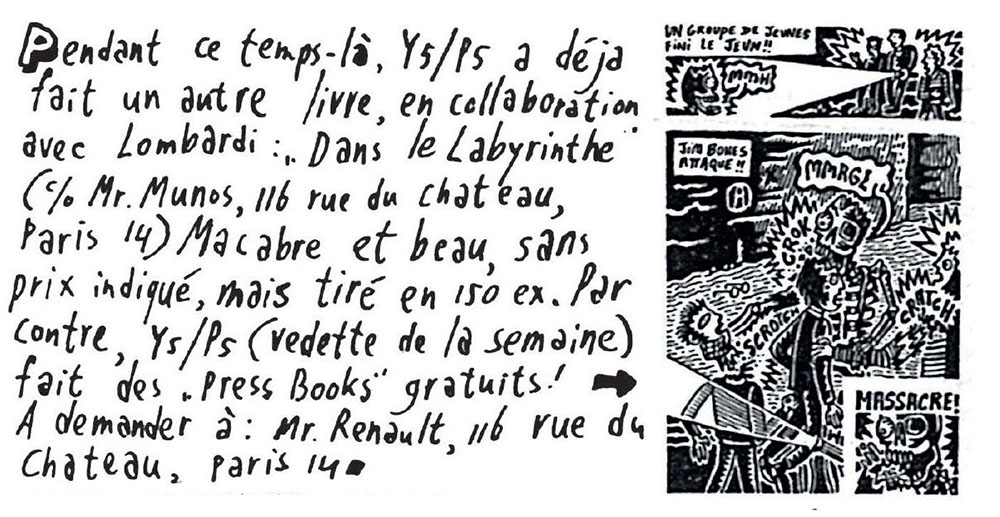 Pendant ce temps-là, Ys/Ps a déja
fait un autre livre, en collaboration
avec Lombardi : „Dans le Labyrinthe"
(c/o Mr. Munos, 116 rue du chateau,
Paris 14) Macabre et beau, sans
prix indiqué, mais tiré en 150 ex. Par
contre, Ys/Ps (vedette de la semaine)
fait des „Press Books" gratuits! ➡
A demander à : Mr. Renault, 116 rue du
Chateau, Paris 14
UN GROUPE DE JEUNES
FINI LE JEUN!!
MMH
JIM BONES
ATTAQUE!!
MMRGL
GROK
SCROTCH
CRATCH
MASSACRE!